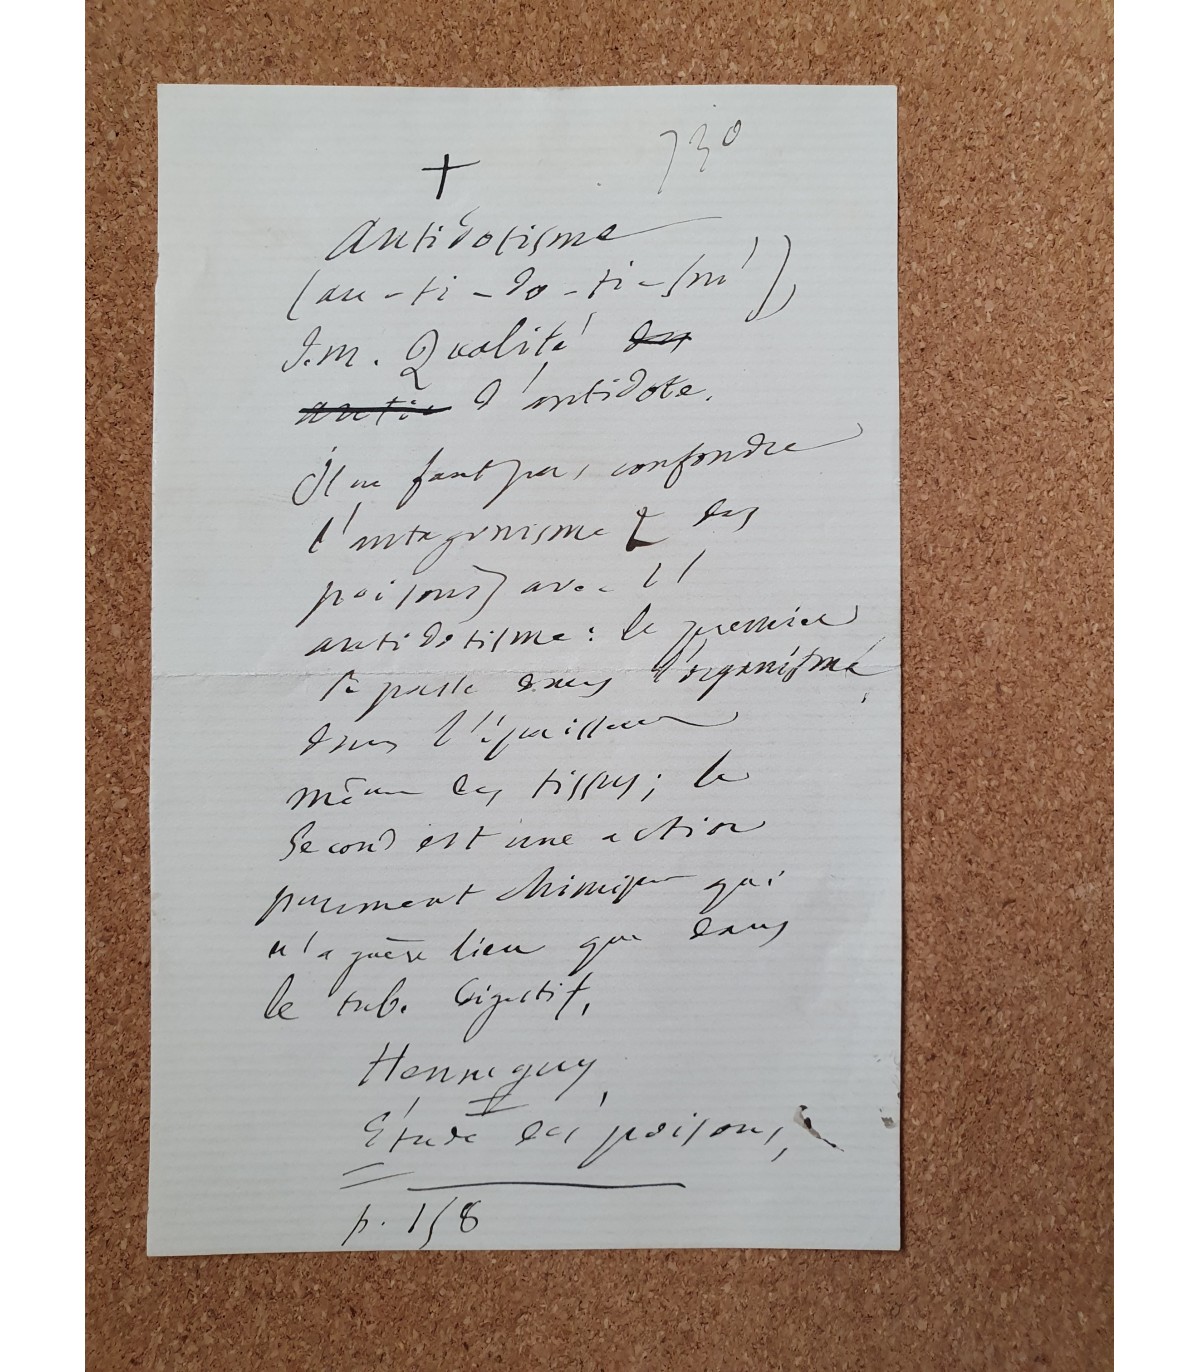 730
+
Antidotisme
(an-ti-do-ti-sm')
s.m. Qualité
d'antidote.
Il ne faut pas confondre
l'antagonisme [des
poisons] avec l'
antidotisme : le premier
se passe dans l'organisme,
dans l'épaisseur
même des tissus; le
second est une action
purement chimique qui
n'a guère lieu que dans
le tube digestif,
Henneguy,
Étude des poisons,
p. 158